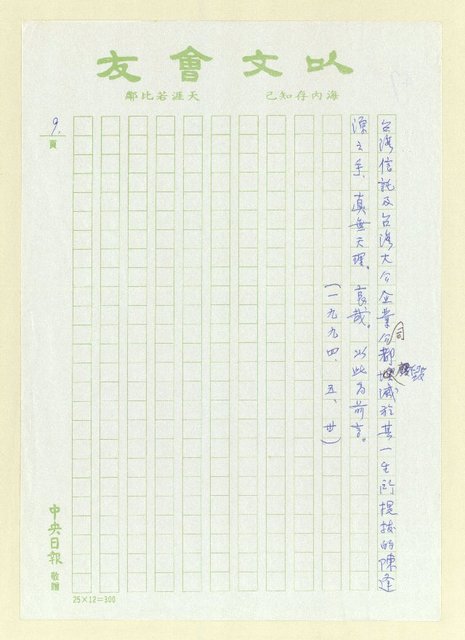 以文會友
海內存知己　天涯若比鄰
台灣信託及台灣大公企業公司都毀滅於其一生所提拔的陳逢
源之手、真無天理。哀哉。以此為前言。
(一九九四、五、廿)
9.頁
中央日報 敬贈
25×12=300